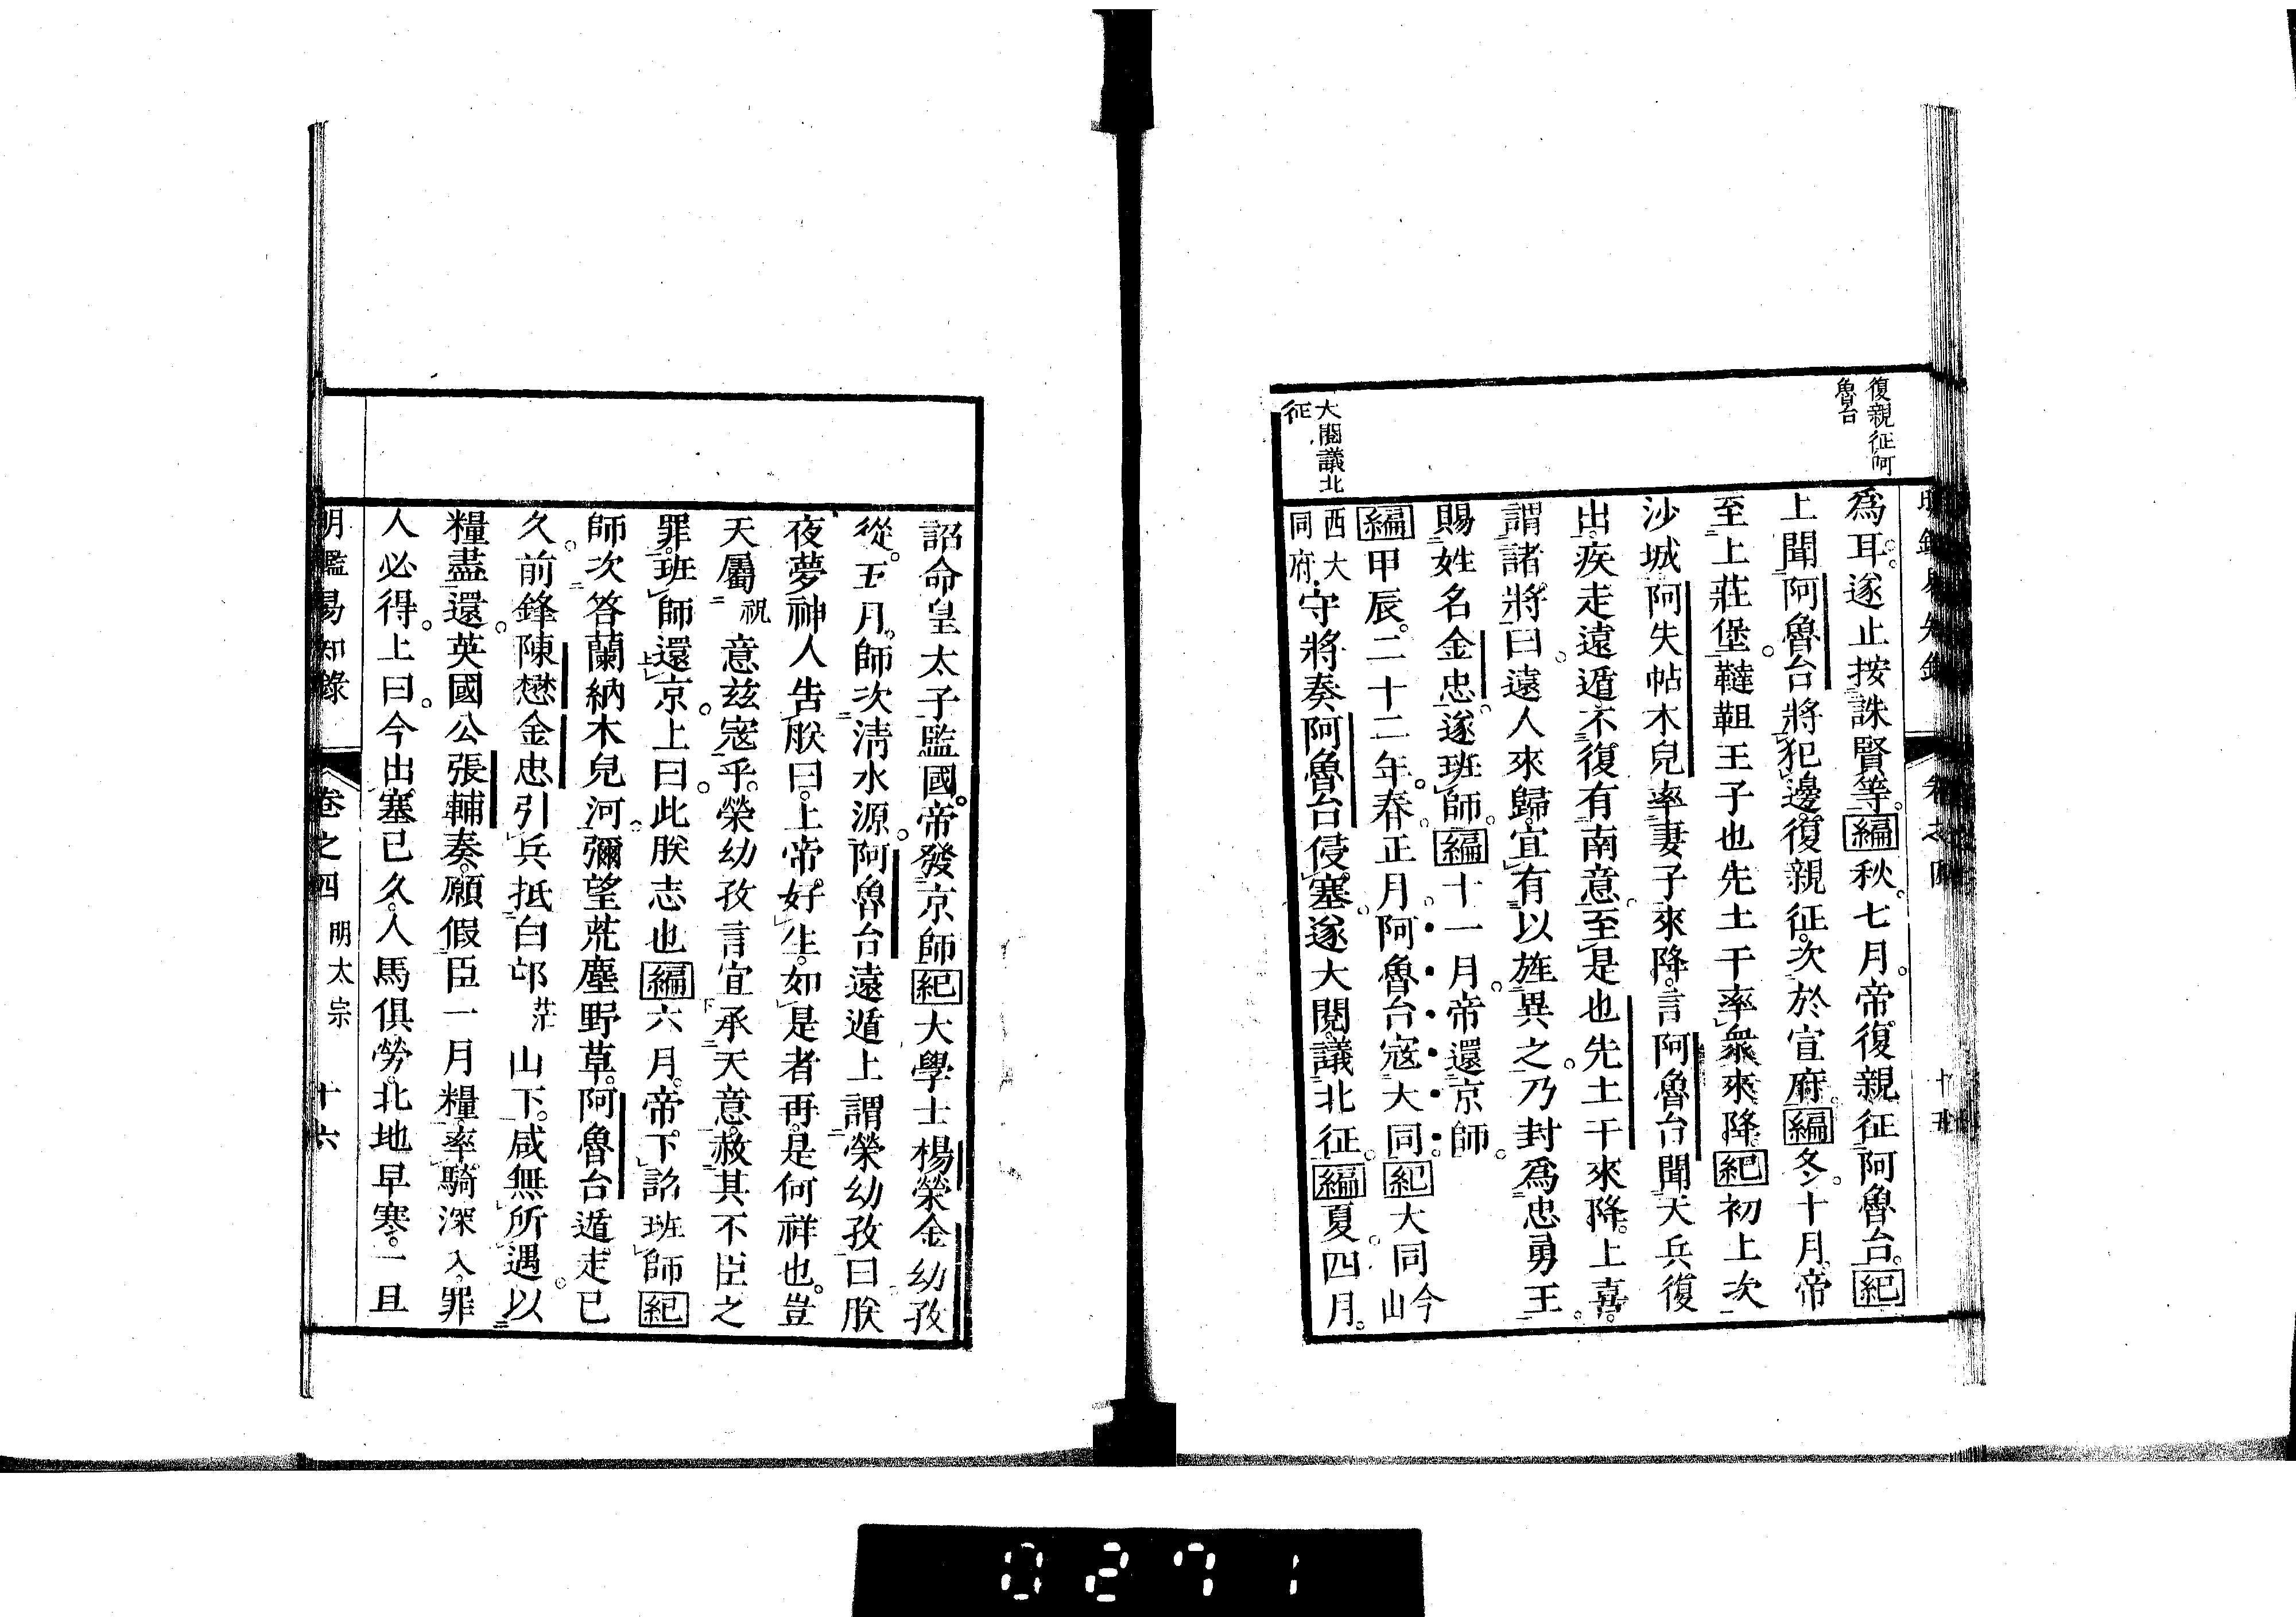 復親征阿
魯台
爲耳遂止按誅賢等編秋七月帝復親征阿魯台紀
上聞阿魯台將犯邊復親征次於宣府編冬十月帝
至上莊堡韃靼王子也先土干率衆來降紀初上次
沙城阿失帖木兒率妻子來降言阿魯台聞天兵復
出疾走遠遁不復有南意至是也先土干來降上喜
謂諸將曰遠人來歸宜有以旌異之乃封爲忠勇王
賜姓名金忠遂班師編十一月帝還京師
編甲辰二十二年春正月阿魯台寇大同紀大同今山
西大同府守將奏阿魯台侵塞遂大閱議北征編夏四月
大閱議北
征
詔命皇太子監國帝發京師紀大學士楊榮金幼孜
從五月師次清水源阿魯台遠遁上謂榮幼孜曰朕
夜夢神人告朕曰上帝好生如是者再是何祥也豈
天屬祝意茲寇乎榮幼孜言宜承天意赦其不臣之
罪班師還京上曰此朕志也編六月帝下詔班師紀
師次答蘭納木兒河彌望荒塵野草阿魯台遁走已
久前鋒陳懋金忠引兵抵白邙茫山下咸無所遇以
糧盡還英國公張輔奏願假臣一月糧率騎深入罪
人必得上曰今出塞已久人馬俱勞北地早寒一旦
明鑑易知錄 卷之四 明太宗 十六
0271